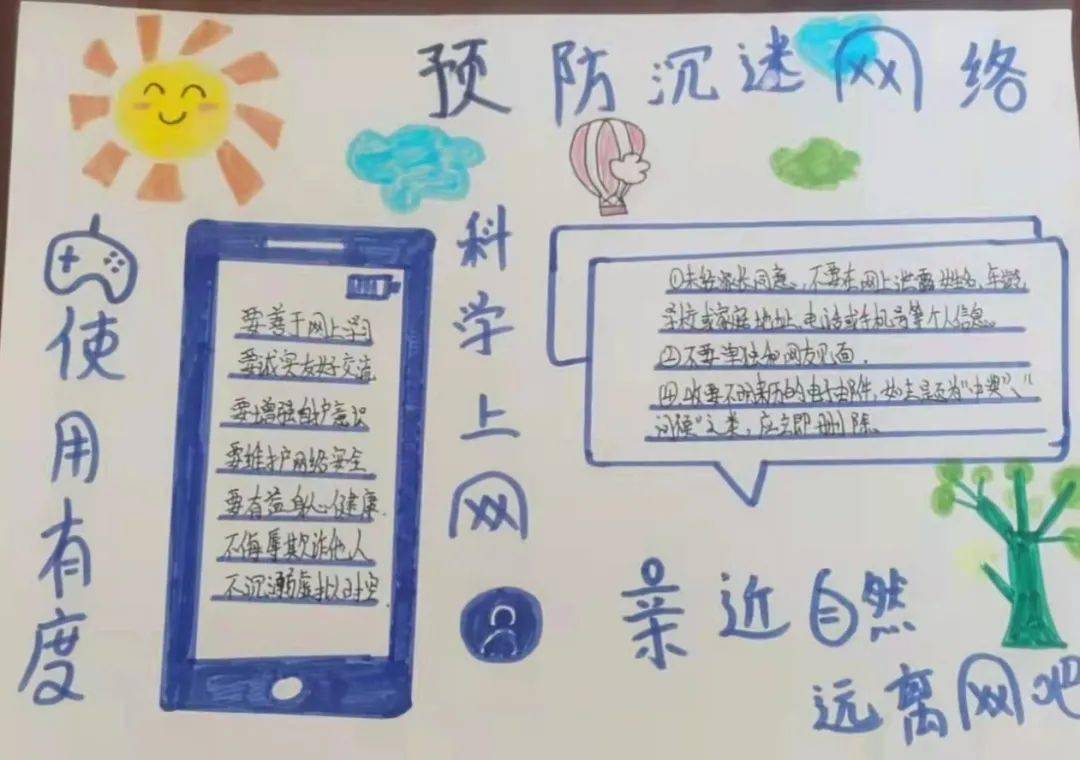 预防沉迷网络
使用有度
要善于网上学习
要诚实友好交流
要增强自护意识
要维护网络安全
要有益身心健康
不侮辱欺诈他人
不沉溺虚拟时空
科学上网
①未经家长同意,不要在网上泄露姓名、年龄、
学校或家庭地址、电话或手机号等个人信息。
②不要单独和网友见面.
④收要不明来历的电子邮件,如主题为“中奖”、“
问候”之类,应立即删除。
亲近自然
远离网吧